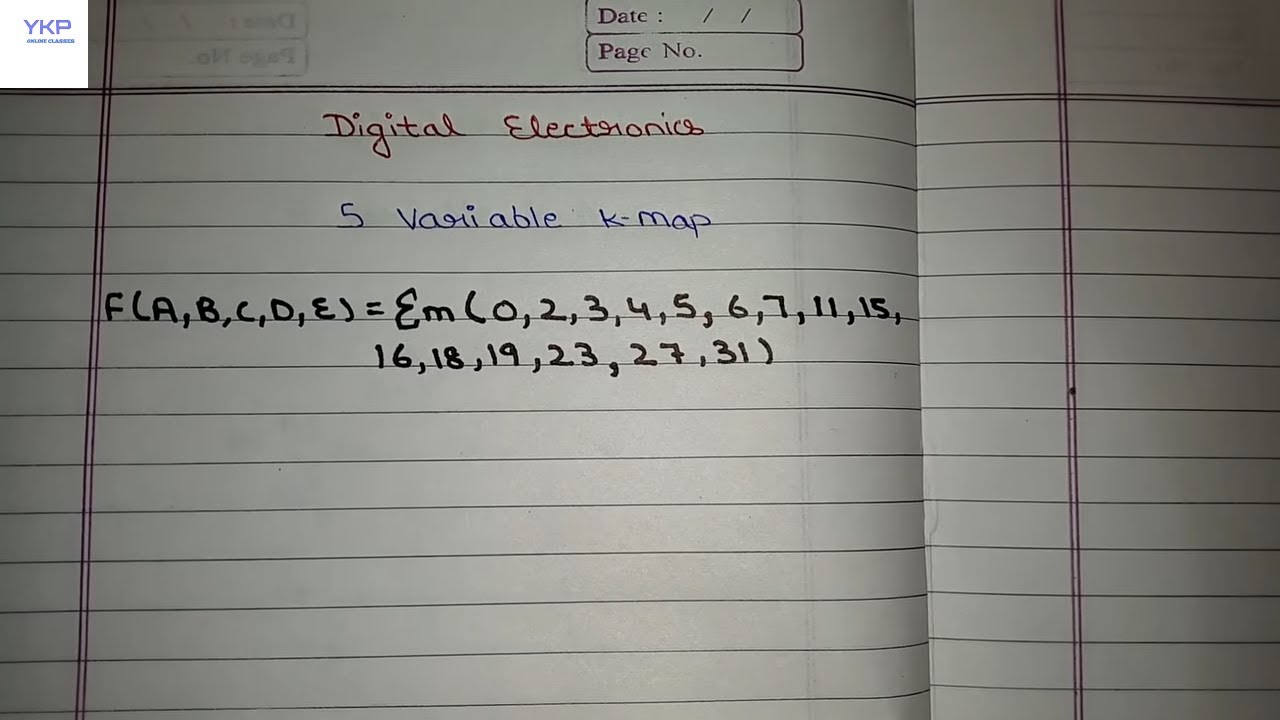 YKP
ONLINE CLASSES
Date : / /
Page No.
Digital Electronics
5 Variable K-map
F(A,B,C,D,E) = Σm(0,2,3,4,5,6,7,11,15,
16,18,19,23,27,31)